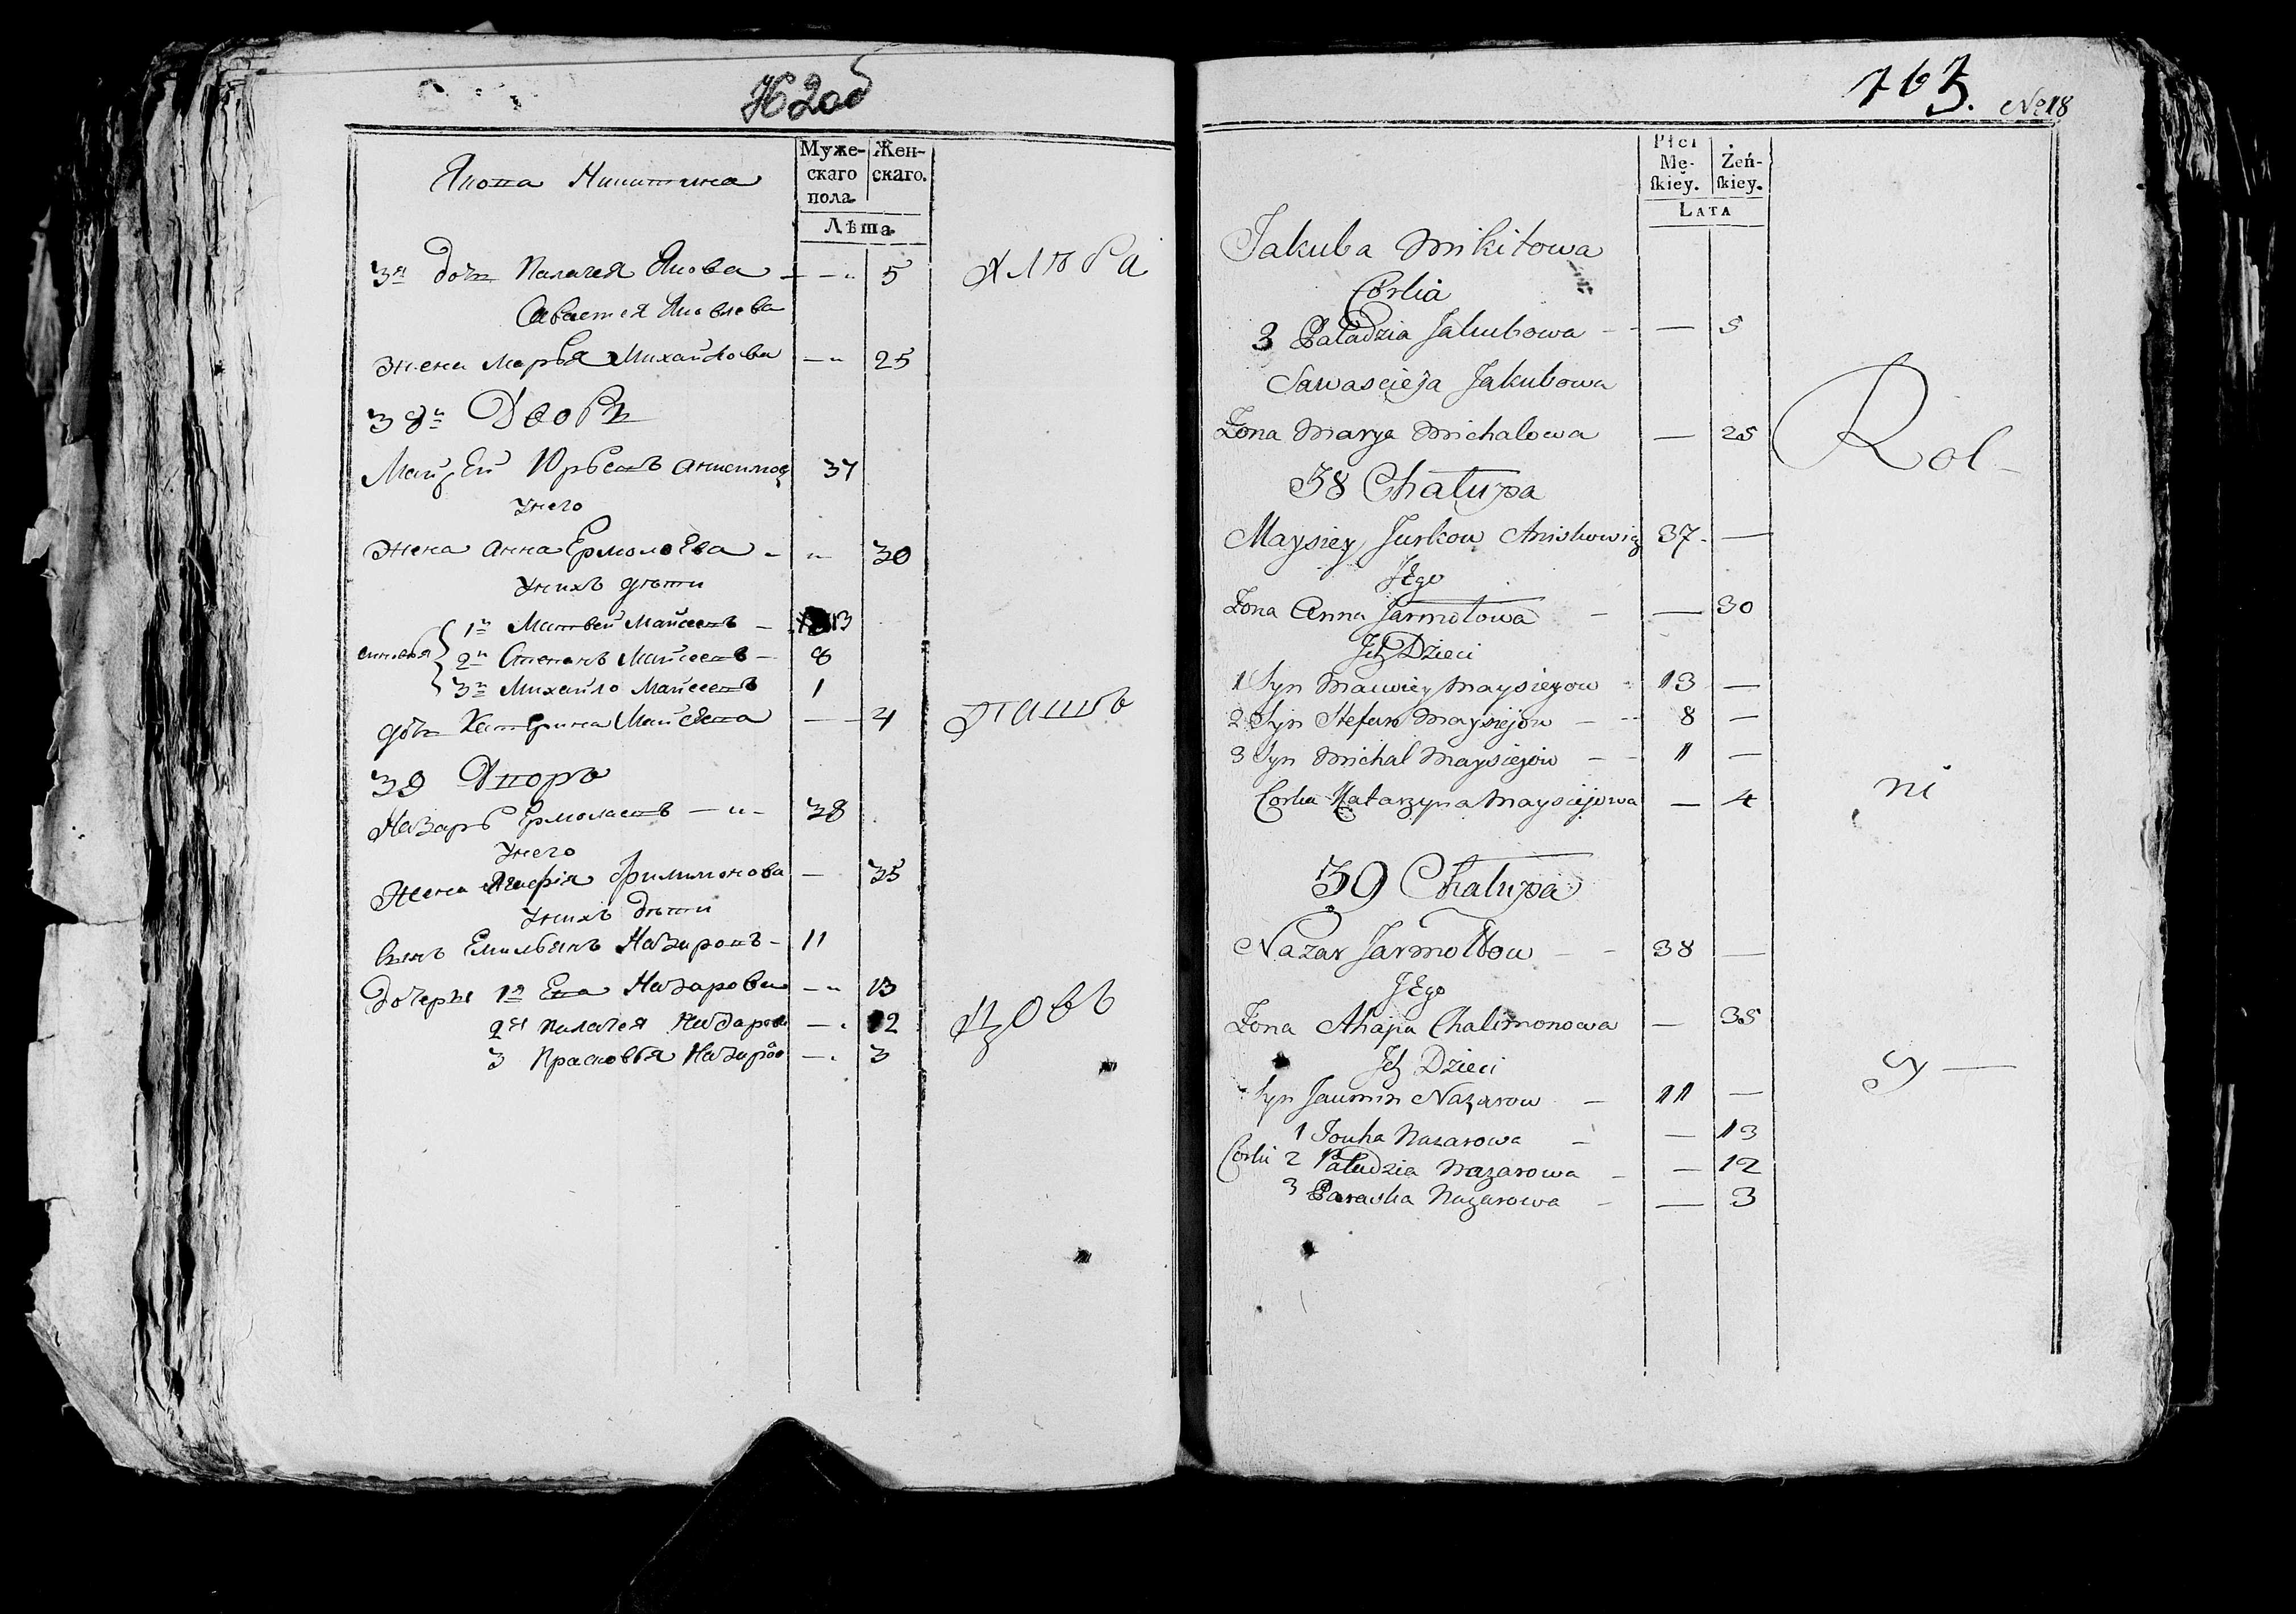 Якова Никитина
Муже-
скаго
пола
Жен-
скаго.
Лѣта
3я дочь Палагея Якова — — 5
Савастея Яковлева
жена Марья Михайлова — 25
38й Дворъ
37
у него
жена Анна Ермолаева — 30
У нихъ дѣти
сыновья
1й Матвей Майсеевъ — 13
2й Степанъ Майсеевъ — 8
3й Михайло Майсеевъ 1
дочь Катерина — 4
39 Дворъ
Назаръ Ермолаевъ — 38
У него
Жена Агафія Филимонова — 35
У нихъ дѣти
Сынъ Емильянъ Назаровъ — 11
Дочеры 1я Ева Назарова — 13
2я Палагея Назарова — 12
3 Прасковья — 3
хлѣба
пашъ
цовъ
763.
№ 18
Płci
Mę-
ſkiey.
Żeń-
ſkiey.
LATA
Jakuba Mikitowa
Corka
3 Paładzia Jakubowa — — 5
Sawascieja Jakubowa
Żona Marya Michałowa — 25
38 Chałupa
Maysiey Jurkow 37 —
Jego
Żona Anna Jarmołowa — — 30
Ich Dzieci
1 Syn Maciey Maysiejow 13 —
2 Syn Stefan Maysiejow — 8 —
3 Syn Michał Maysiejow — 1 —
Corka Katarzyna Maysiejowa — 4
39 Chałupa
Nazar Jarmołow — 38 —
Jego
Żona Ahapa Chalimonowa — 35
Ich Dzieci
Syn Nazarow — 11 —
1 Nazarowa — — 13
Corki 2 Paładzia Nazarowa — — 12
3 Paraska Nazarowa — — 3
Rol-
ni
cy —